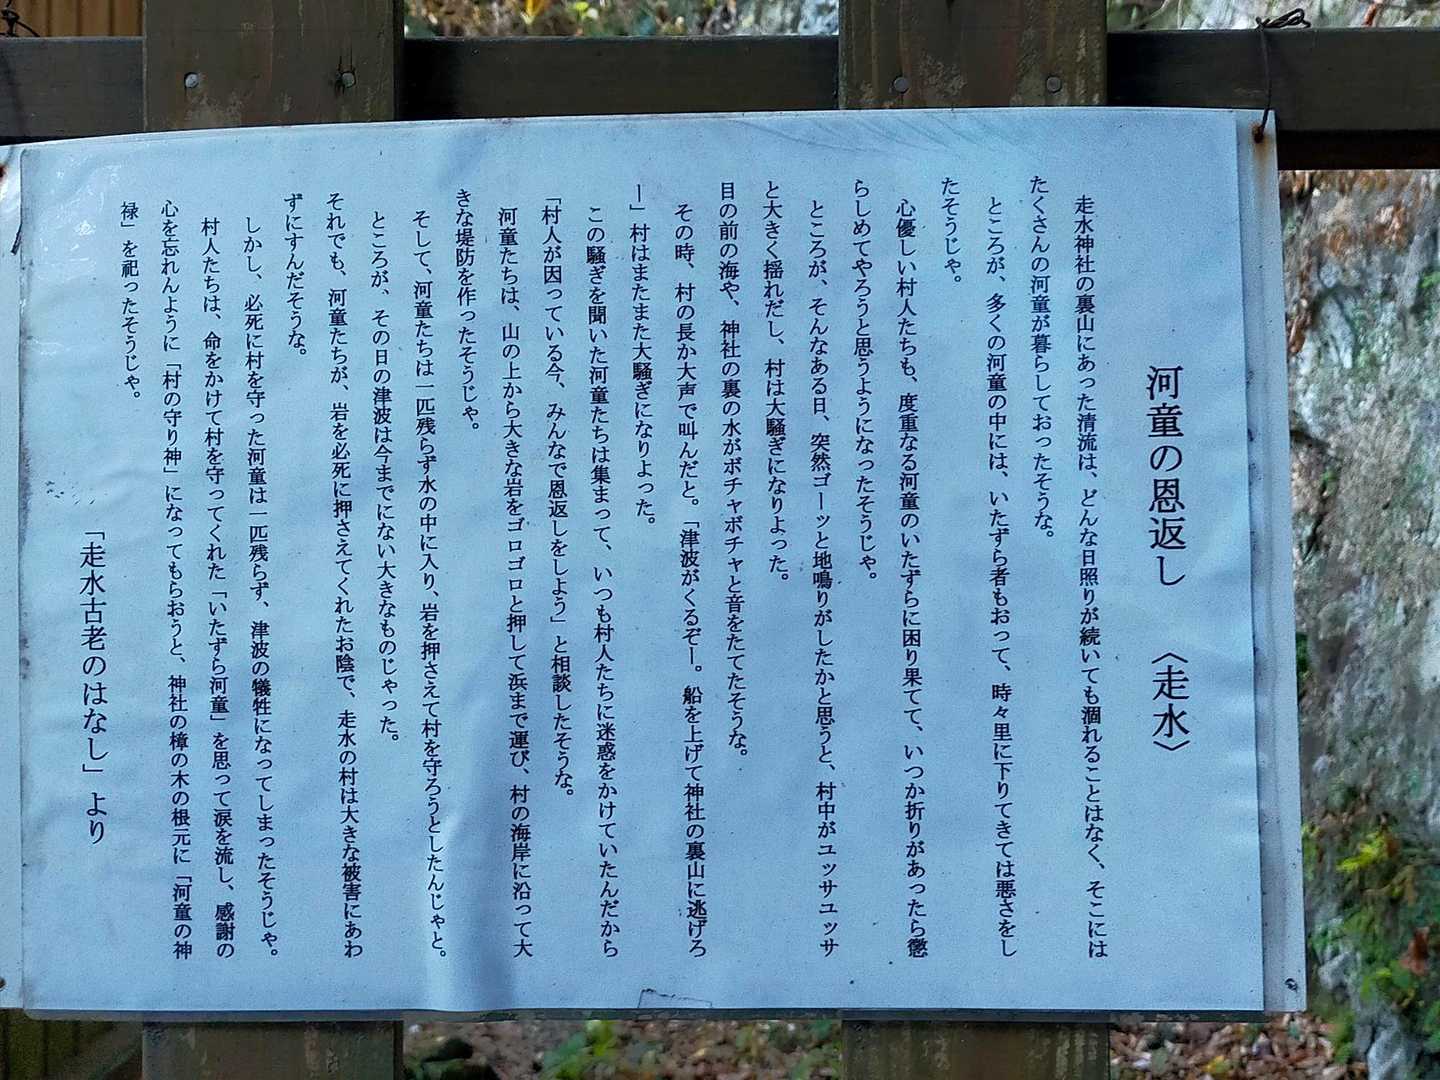 河童の恩返し　〈走水〉
走水神社の裏山にあった清流は、どんな日照りが続いても涸れることはなく、そこには
たくさんの河童が暮らしておったそうな。
ところが、多くの河童の中には、いたずら者もおって、時々里に下りてきては悪さをし
たそうじゃ。
心優しい村人たちも、度重なる河童のいたずらに困り果てて、いつか折りがあったら懲
らしめてやろうと思うようになったそうじゃ。
ところが、そんなある日、突然ゴーッと地鳴りがしたかと思うと、村中がユッサユッサ
と大きく揺れだし、村は大騒ぎになりよった。
目の前の海や、神社の裏の水がボチャボチャと音をたてたそうな。
その時、村の長か大声で叫んだと。「津波がくるぞー。船を上げて神社の裏山に逃げろ
ー」村はまたまた大騒ぎになりよった。
この騒ぎを聞いた河童たちは集まって、いつも村人たちに迷惑をかけていたんだから
「村人が因っている今、みんなで恩返しをしよう」と相談したそうな。
河童たちは、山の上から大きな岩をゴロゴロと押して浜まで運び、村の海岸に沿って大
きな堤防を作ったそうじゃ。
そして、河童たちは一匹残らず水の中に入り、岩を押さえて村を守ろうとしたんじゃと。
ところが、その日の津波は今までにない大きなものじゃった。
それでも、河童たちが、岩を必死に押さえてくれたお陰で、走水の村は大きな被害にあわ
ずにすんだそうな。
しかし、必死に村を守った河童は一匹残らず、津波の犠牲になってしまったそうじゃ。
村人たちは、命をかけて村を守ってくれた「いたずら河童」を思って涙を流し、感謝の
心を忘れんように「村の守り神」になってもらおうと、神社の樟の木の根元に「河童の神
禄」を祀ったそうじゃ。
「走水古老のはなし」より